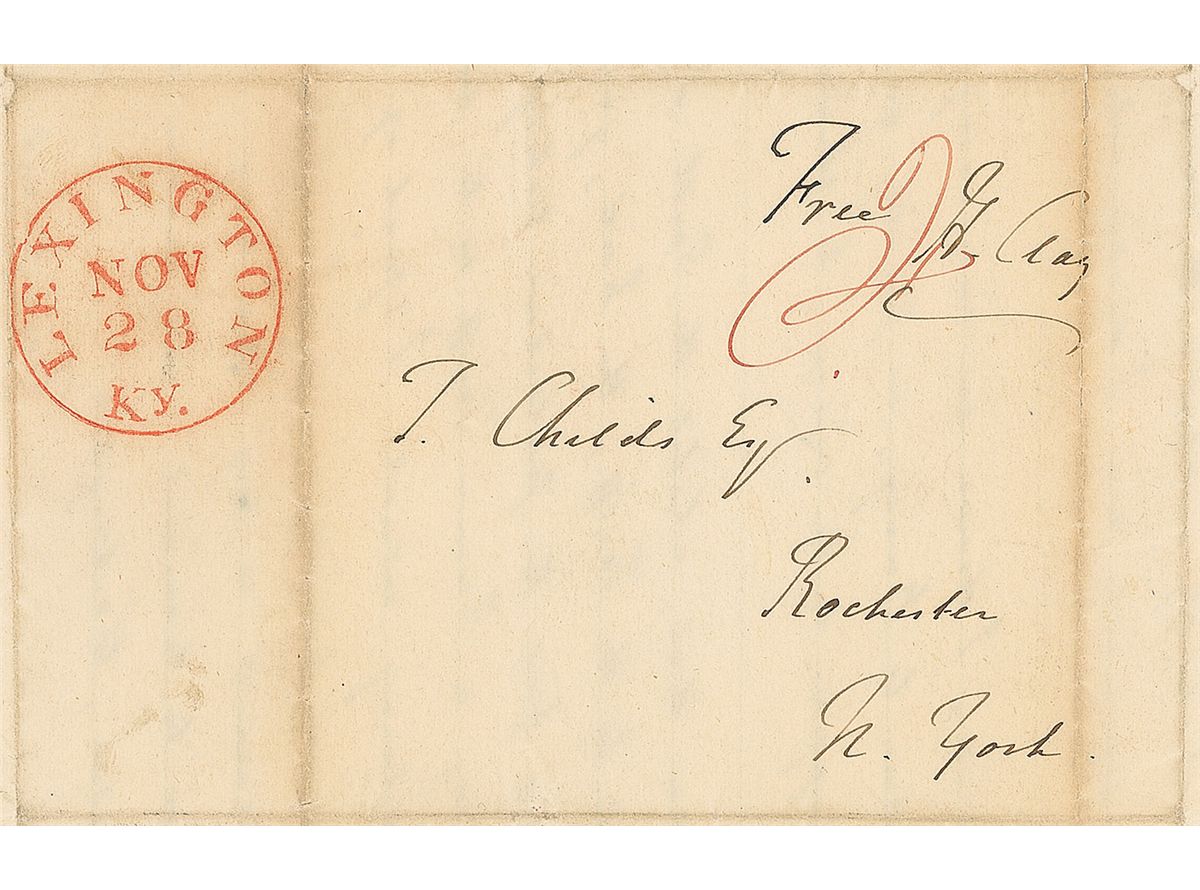 LEXINGTON
NOV
28
KY.
Free H. Clay
T. Childs Esq.
Rochester
N. York.